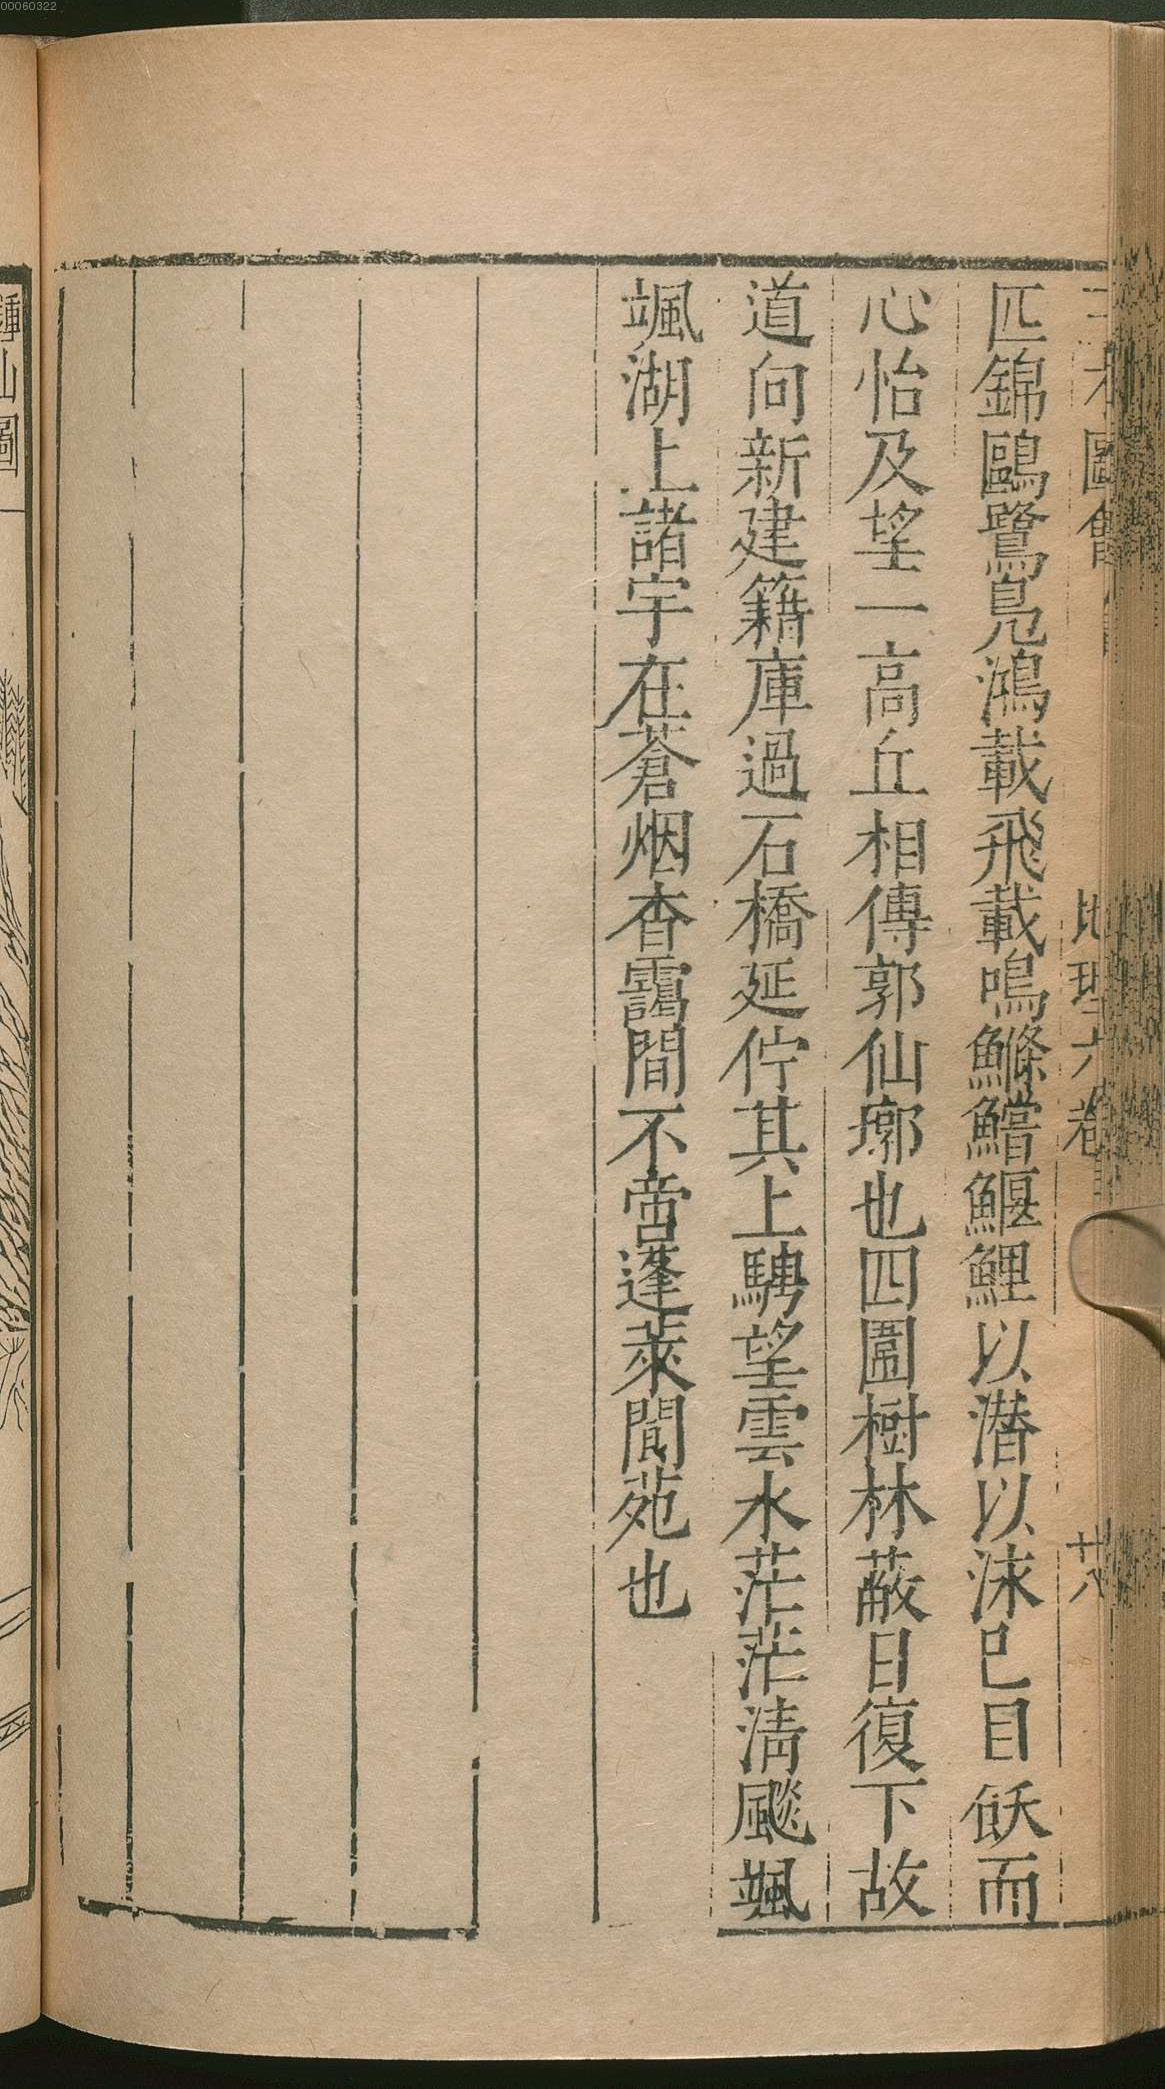 三才圖會
地理六卷
十八
匹錦鷗鷺鳧鴻載飛載鳴鰷鱨鰋鯉以潜以沫已目飫而
心怡及望一高丘相傳郭仙墎也四圍樹林蔽日復下故
道向新建籍庫過石橋延佇其上騁望雲水茫茫清飈颯
颯湖上諸宇在蒼烟杳靄間不啻蓬萊閬苑也
鍾山圖
00060322